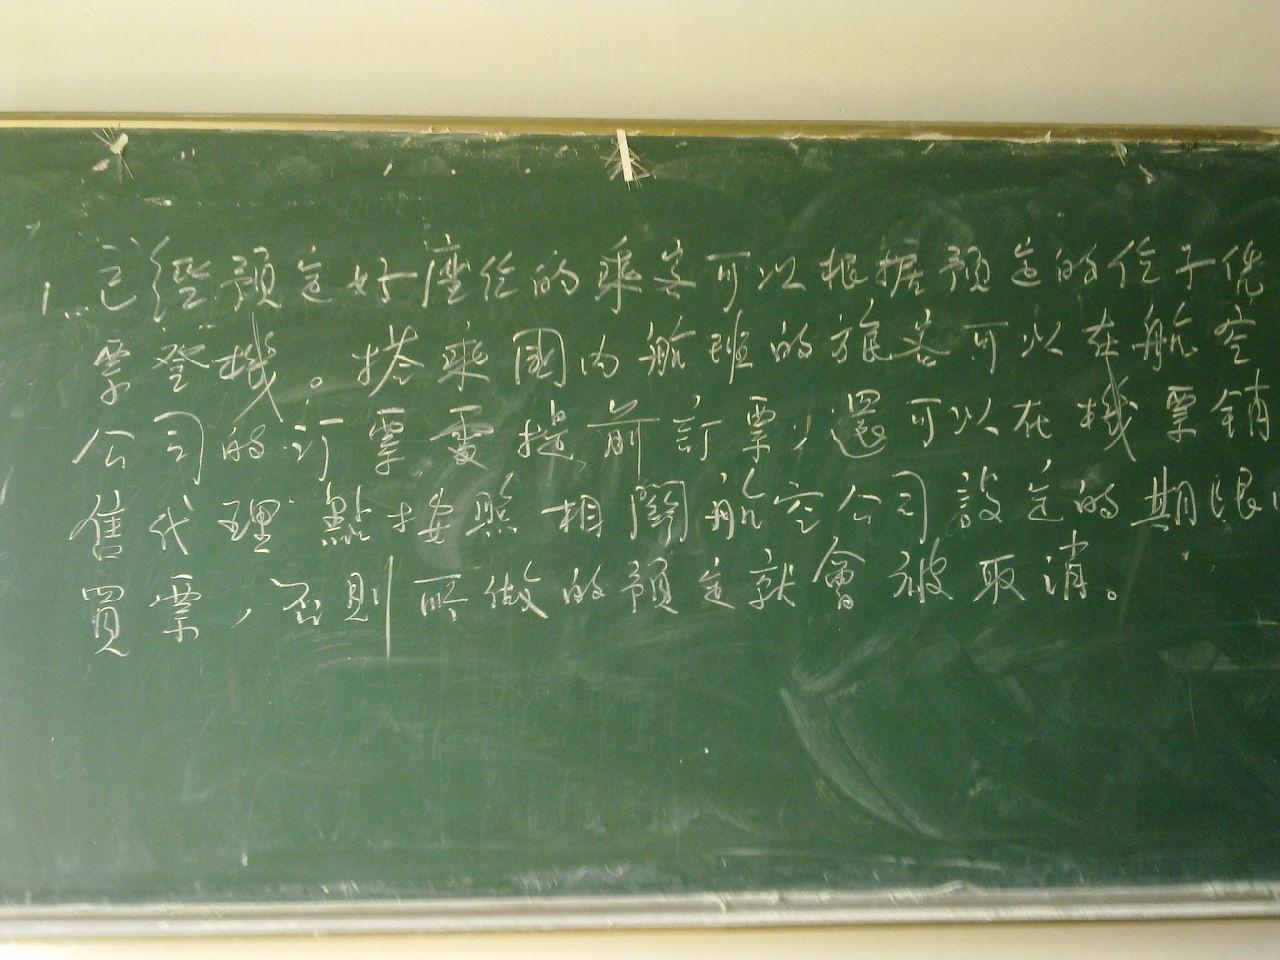 1. 已經預定好座位的乘客可以根據預定的位子凭
票登機。搭乘國內航班的旅客可以在航空
公司的訂票處提前訂票，還可以在機票銷
售代理點按照相關航空公司設定的期限內
買票，否則所做的預定就會被取消。